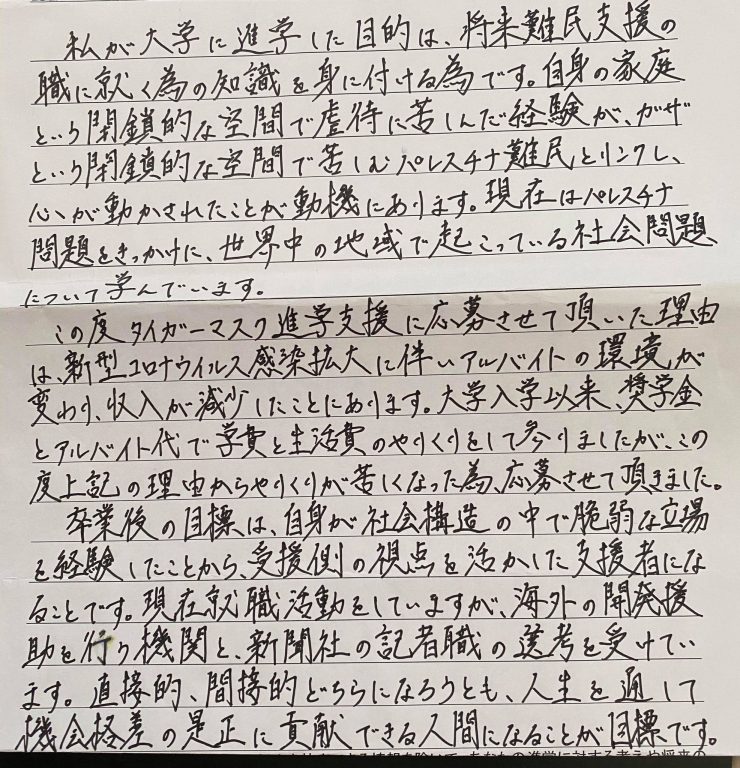 私が大学に進学した目的は、将来難民支援の
職に就く為の知識を身に付ける為です。自身の家庭
という閉鎖的な空間で虐待に苦しんだ経験が、ガザ
という閉鎖的な空間で苦しむパレスチナ難民とリンクし、
心が動かされたことが動機にあります。現在はパレスチナ
問題をきっかけに、世界中の地域で起こっている社会問題
について学んでいます。
この度タイガーマスク進学支援に応募させて頂いた理由
は、新型コロナウイルス感染拡大に伴いアルバイトの環境が
変わり、収入が減少したことにあります。大学入学以来、奨学金
とアルバイト代で学費と生活費のやりくりをして参りましたが、この
度上記の理由からやりくりが苦しくなった為、応募させて頂きました。
卒業後の目標は、自身が社会構造の中で脆弱な立場
を経験したことから、受援側の視点を活かした支援者にな
ることです。現在就職活動をしていますが、海外の開発援
助を行う機関と、新聞社の記者職の選考を受けてい
ます。直接的、間接的どちらになろうとも、人生を通して
機会格差の是正に貢献できる人間になることが目標です。